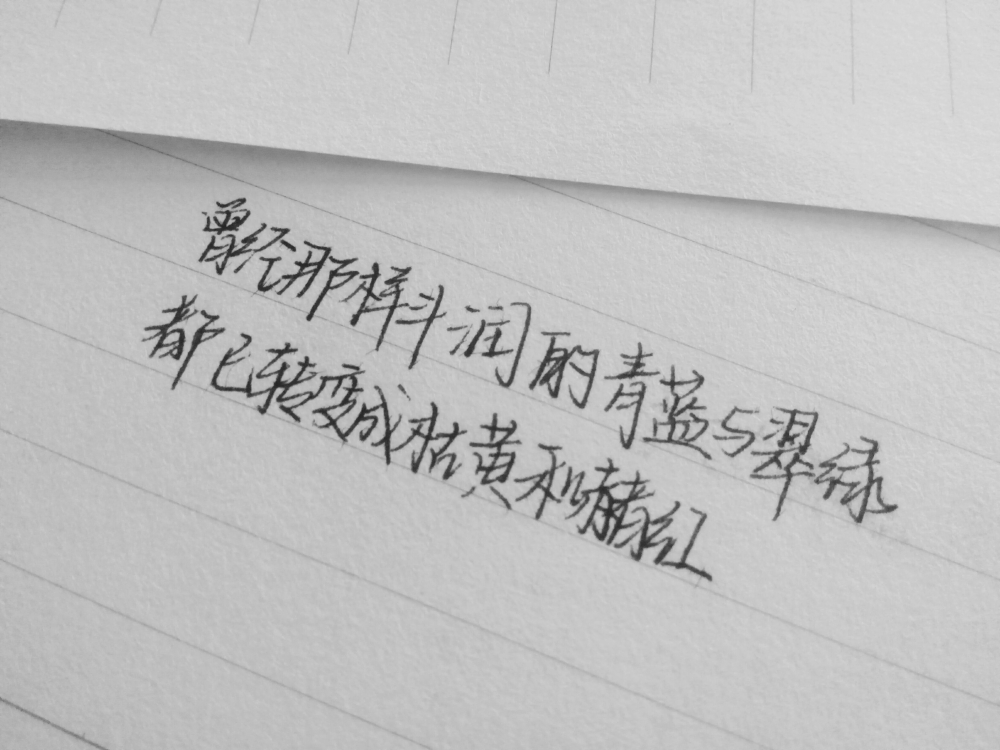 曾经那样丰润的青蓝与翠绿
都已转变成枯黄和赭红